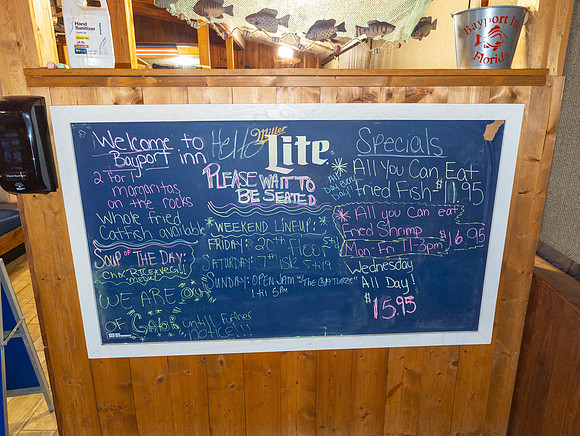 Hand Sanitizer
BAYPORT INN
FLORIDA
Welcome to
Bayport inn
2 for
margaritas
on the rocks
Whole fried
Catfish available
SOUP OF THE DAY:
WE ARE OUT
OF Gator until further
notice!!!
Hello
Miller
Lite
PLEASE WAIT TO
BE SEATED
WEEKEND LINEUP:
FRIDAY: 20th Floor
SATURDAY: 7th isle 5to9
SUNDAY: OPEN JAM w/"THE
1 till 5pm
Specials
All You Can Eat
fried Fish-$11.95
All Day Every Day!
All you can eat
Fried Shrimp
Mon-Fri 11-3pm $16.95
Wednesday
All Day!
$15.95